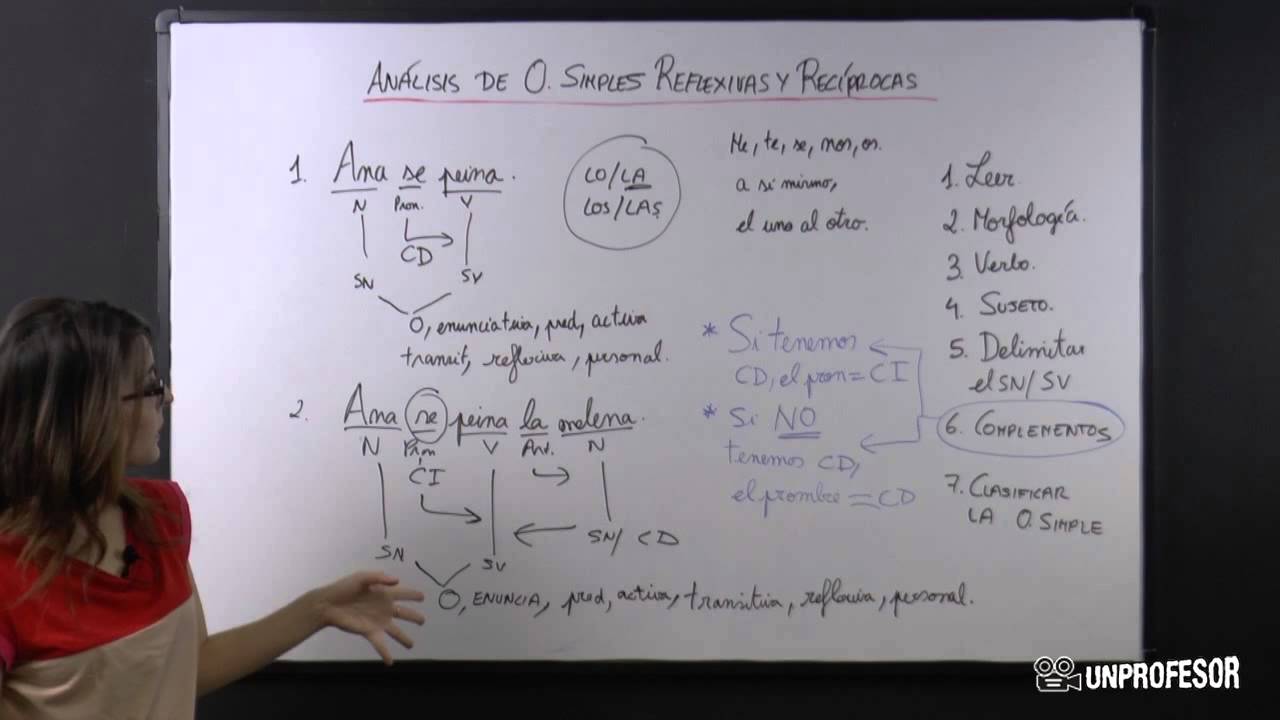 ANÁLISIS DE O. SIMPLES REFLEXIVAS Y RECÍPROCAS
1. Ana se peina.
N Pron. V
CD
SN SV
O, enunciativa, pred, activa
transit, reflexiva, personal.
2. Ana se peina la melena.
N Pron V Art. N
CI
SN/CD
SN SV
O, ENUNCIA, pred, activa, transitiva, reflexiva, personal.
LO/LA
LOS/LAS
Me, te, se, nos, os.
a sí mismo,
el uno al otro.
* Si tenemos
CD, el pron = CI
* Si NO
tenemos CD,
el prombre = CD
1. Leer.
2. Morfología.
3. Verbo.
4. SUJETO.
5. Delimitar
el SN/SV
6. COMPLEMENTOS
7. CLASIFICAR
LA O. SIMPLE
UNPROFESOR